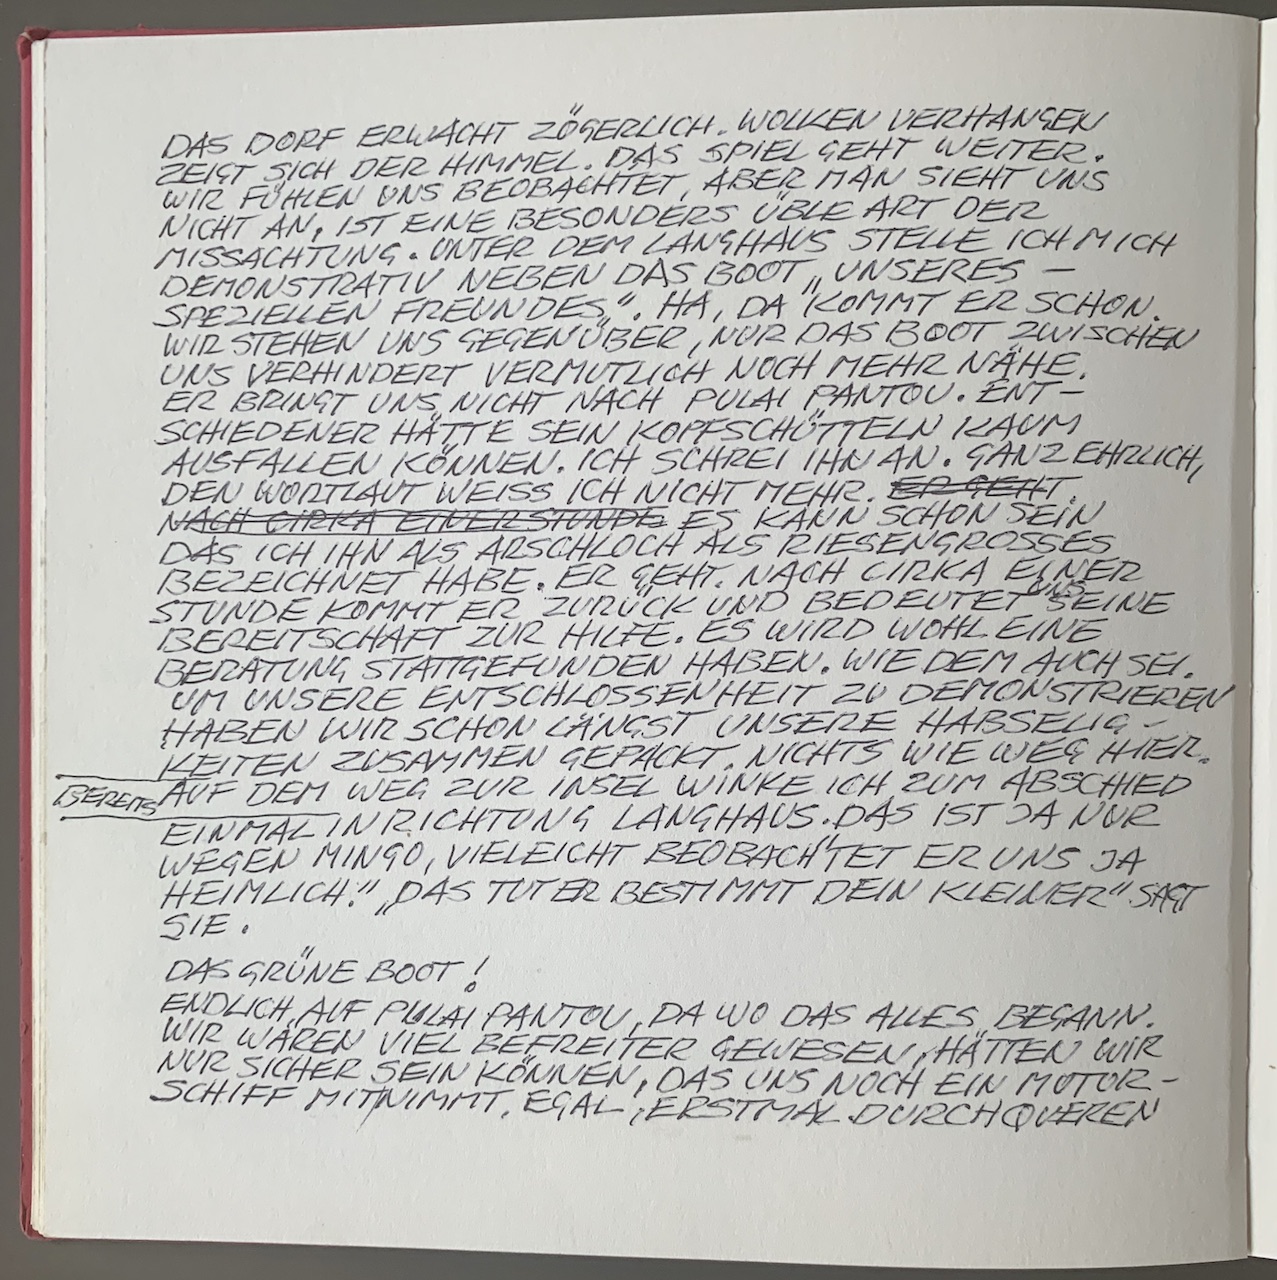 DAS DORF ERWACHT ZÖGERLICH. WOLKEN VERHANGEN
ZEIGT SICH DER HIMMEL. DAS SPIEL GEHT WEITER.
WIR FÜHLEN UNS BEOBACHTET, ABER MAN SIEHT UNS
NICHT AN, IST EINE BESONDERS ÜBLE ART DER
MISSACHTUNG. UNTER DEM LANGHAUS STELLE ICH MICH
DEMONSTRATIV NEBEN DAS BOOT „UNSERES –
SPEZIELLEN FREUNDES„“. HA, DA KOMMT ER SCHON.
WIR STEHEN UNS GEGENÜBER, NUR DAS BOOT ZWISCHEN
UNS VERHINDERT VERMUTLICH NOCH MEHR NÄHE.
ER BRINGT UNS NICHT NACH PULAI PANTOU. ENT–
SCHIEDENER HÄTTE SEIN KOPFSCHÜTTELN KAUM
AUSFALLEN KÖNNEN. ICH SCHREI IHN AN. GANZ EHRLICH,
DEN WORTLAUT WEISS ICH NICHT MEHR. ER GEHT.
NACH CIRKA EINER STUNDE ES KANN SCHON SEIN
DAS ICH IHN ALS ARSCHLOCH ALS RIESENGROSSES
BEZEICHNET HABE. ER GEHT. NACH CIRKA EINER
STUNDE KOMMT ER ZURÜCK UND BEDEUTET UNS SEINE
BEREITSCHAFT ZUR HILFE. ES WIRD WOHL EINE
BERATUNG STATTGEFUNDEN HABEN. WIE DEM AUCH SEI.
UM UNSERE ENTSCHLOSSENHEIT ZU DEMONSTRIEREN
HABEN WIR SCHON LÄNGST UNSERE HABSELIG–
KEITEN ZUSAMMEN GEPACKT. NICHTS WIE WEG HIER.
BEREITS AUF DEM WEG ZUR INSEL WINKE ICH ZUM ABSCHIED
EINMAL IN RICHTUNG LANGHAUS. „DAS IST JA NUR
WEGEN MINGO, VIELEICHT BEOBACHTET ER UNS JA
HEIMLICH.“ „DAS TUT ER BESTIMMT DEIN KLEINER“ SAGT
SIE.
DAS GRÜNE BOOT!
ENDLICH AUF PULAI PANTOU, DA WO DAS ALLES BEGANN.
WIR WÄREN VIEL BEFREITER GEWESEN, HÄTTEN WIR
NUR SICHER SEIN KÖNNEN, DAS UNS NOCH EIN MOTOR–
SCHIFF MITNIMMT. EGAL, ERSTMAL DURCHQUEREN